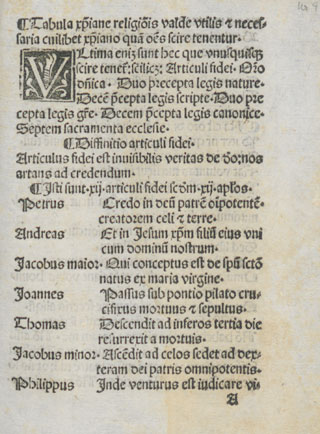 ¶Tabula xp̄iane religiōis valde vtilis ⁊ neces-
saria cuilibet xp̄iano quā oēs scire tenentur.
VLtima eniz sunt hec que vnusquisqz
scire tenet᷑: scilicz: Articuli fidei.
dn̄ica. Duo precepta legis nature.
Decē p̄cepta legis scripte. Duo pre
cepta legis gr̄e. Decem p̄cepta legis canonice.
Septem sacramenta ecclesie.
¶Diffinitio articuli fidei.
Articulus fidei est inuisibilis veritas de
artans ad credendum.
¶Isti sunt .xij. articuli fidei scd̄m .xij. ap̄los.
Petrus Credo in deū patrē oīpotentē
creatorem celi ⁊ terre.
Andreas Et in Jesum xp̄m filiū eius vni
cum dominū nostrum.
Jacobus maior. Qui conceptus est de spū sctō
natus ex maria virgine.
Joannes Passus sub pontio pilato cru-
cifixus mortuus ⁊ sepultus.
Thomas Descendit ad inferos tertia die
resurrexit a mortuis.
Jacobus minor. Ascēdit ad celos sedet ad dex-
teram dei patris omnipotentis.
Philippus Inde venturus est iudicare vi-
A